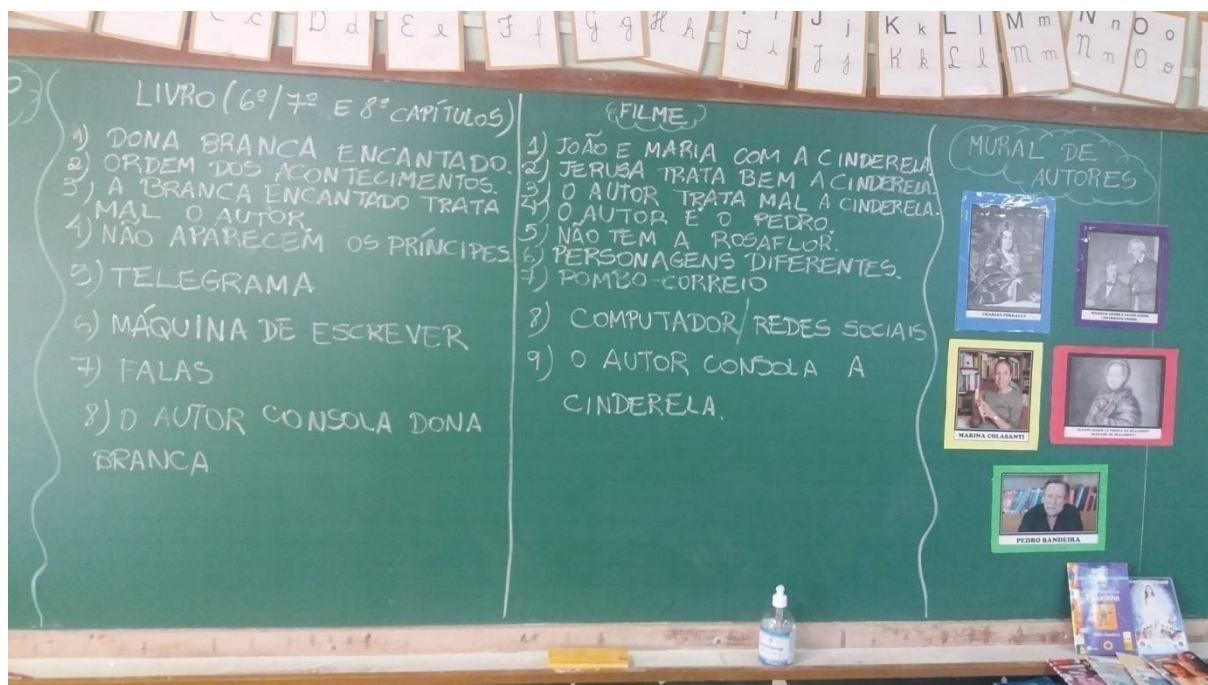 C c
D d
E e
F f
G g
H h
I i
J j
J j
K k
K k
L l
L l
M m
M m
N n
N n
O o
O o
LIVRO (6º/7º E 8º CAPÍTULOS)
1) DONA BRANCA ENCANTADO.
2) ORDEM DOS ACONTECIMENTOS.
3) A BRANCA ENCANTADO TRATA
MAL O AUTOR.
4) NÃO APARECEM OS PRÍNCIPES.
5) TELEGRAMA
6) MÁQUINA DE ESCREVER
7) FALAS
8) O AUTOR CONSOLA DONA
BRANCA
FILME
1) JOÃO E MARIA COM A CINDERELA
2) JERUSA TRATA BEM A CINDERELA.
3) O AUTOR TRATA MAL A CINDERELA.
4) O AUTOR É O PEDRO.
5) NÃO TEM A ROSAFLOR.
6) PERSONAGENS DIFERENTES.
7) POMBO-CORREIO
8) COMPUTADOR/REDES SOCIAIS
9) O AUTOR CONSOLA A
CINDERELA.
MURAL DE
AUTORES
CHARLES PERRAULT
MARINA COLASANTI
PEDRO BANDEIRA